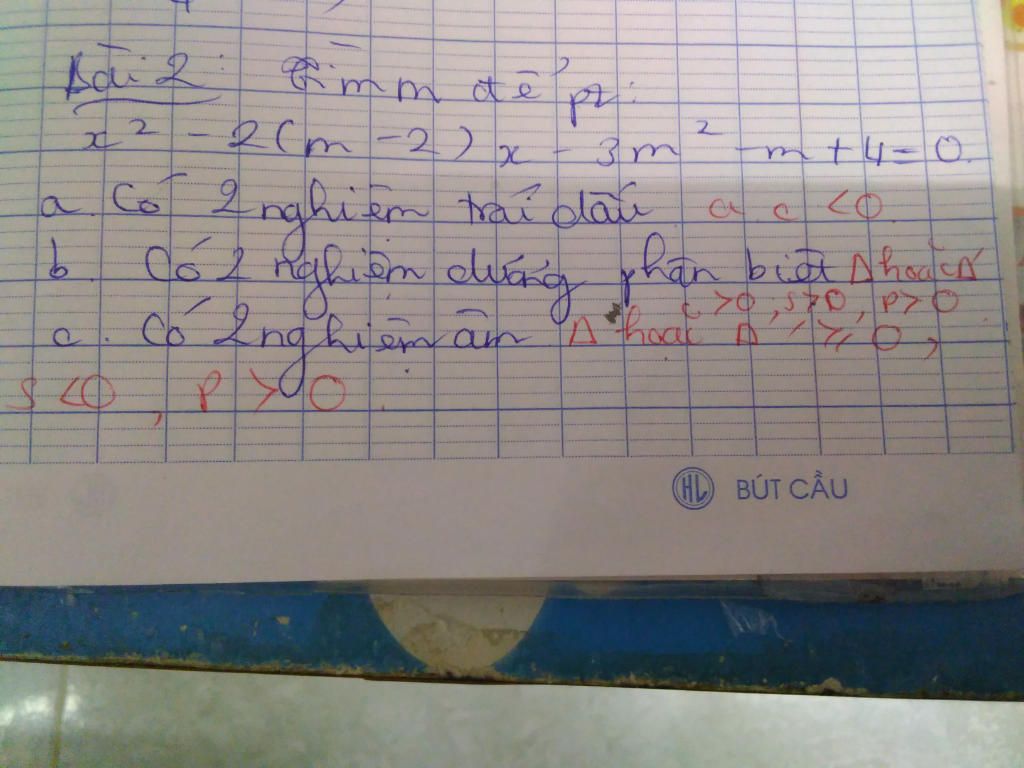 Bài 2: Tìm m để pt:
x² - 2(m - 2) x - 3m² - m + 4 = 0
a. Có 2 nghiệm trái dấu a c < 0
b. Có 2 nghiệm dương phân biệt Δ hoặc Δ'
> 0, S > 0, P > 0
c. Có 2 nghiệm âm Δ hoặc Δ' ≥ 0,
S < 0, P > 0.
HL BÚT CẦU